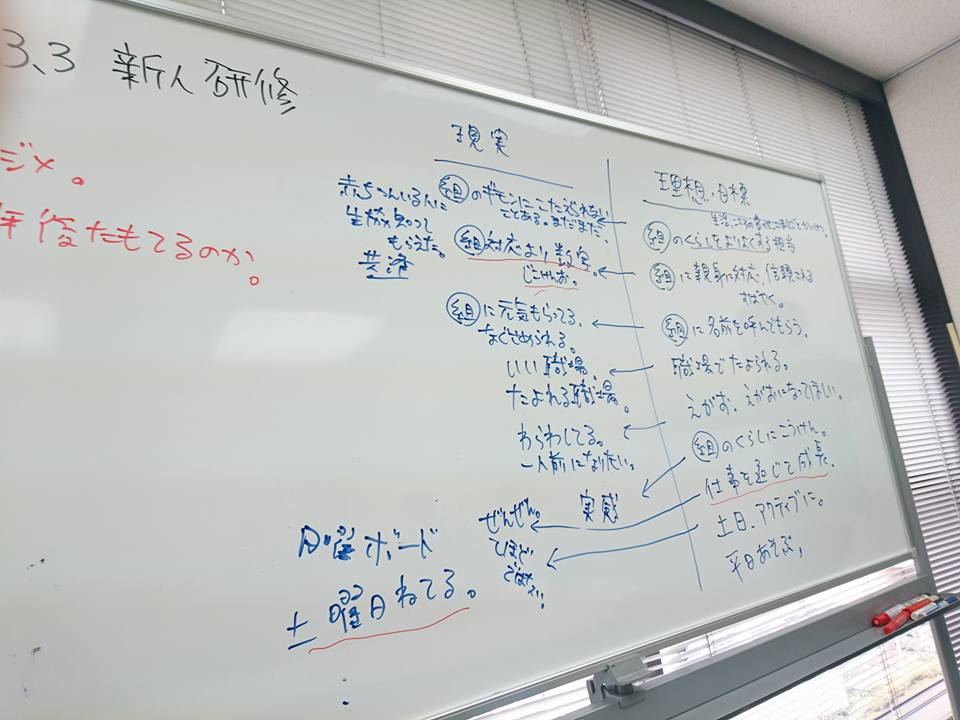 3、3 新人研修
ジメ。
年後たもてるのか。
現実
赤ちゃんいる人に
生協知って
もらえた。
共済
組のギモンにこたえられない
ことある。まだまだ。
組対応より数字。
じこけんお。
組に元気もらってる、
なぐさめられる。
いい職場。
たよれる職場。
わらわしてる。
一人前になりたい。
実感
ぜんぜん。
ひほど
日曜ボード
土曜日ねてる。
理想・目標
組のくらしをよりよくする担当
組に親身に対応、信頼される
すばやく。
組に名前を呼んでもらう。
職場でたよられる。
えがお、えがおになってほしい。
組のくらしにこうけん。
仕事を通じて成長、
土日、アクティブに。
平日あそぶ、